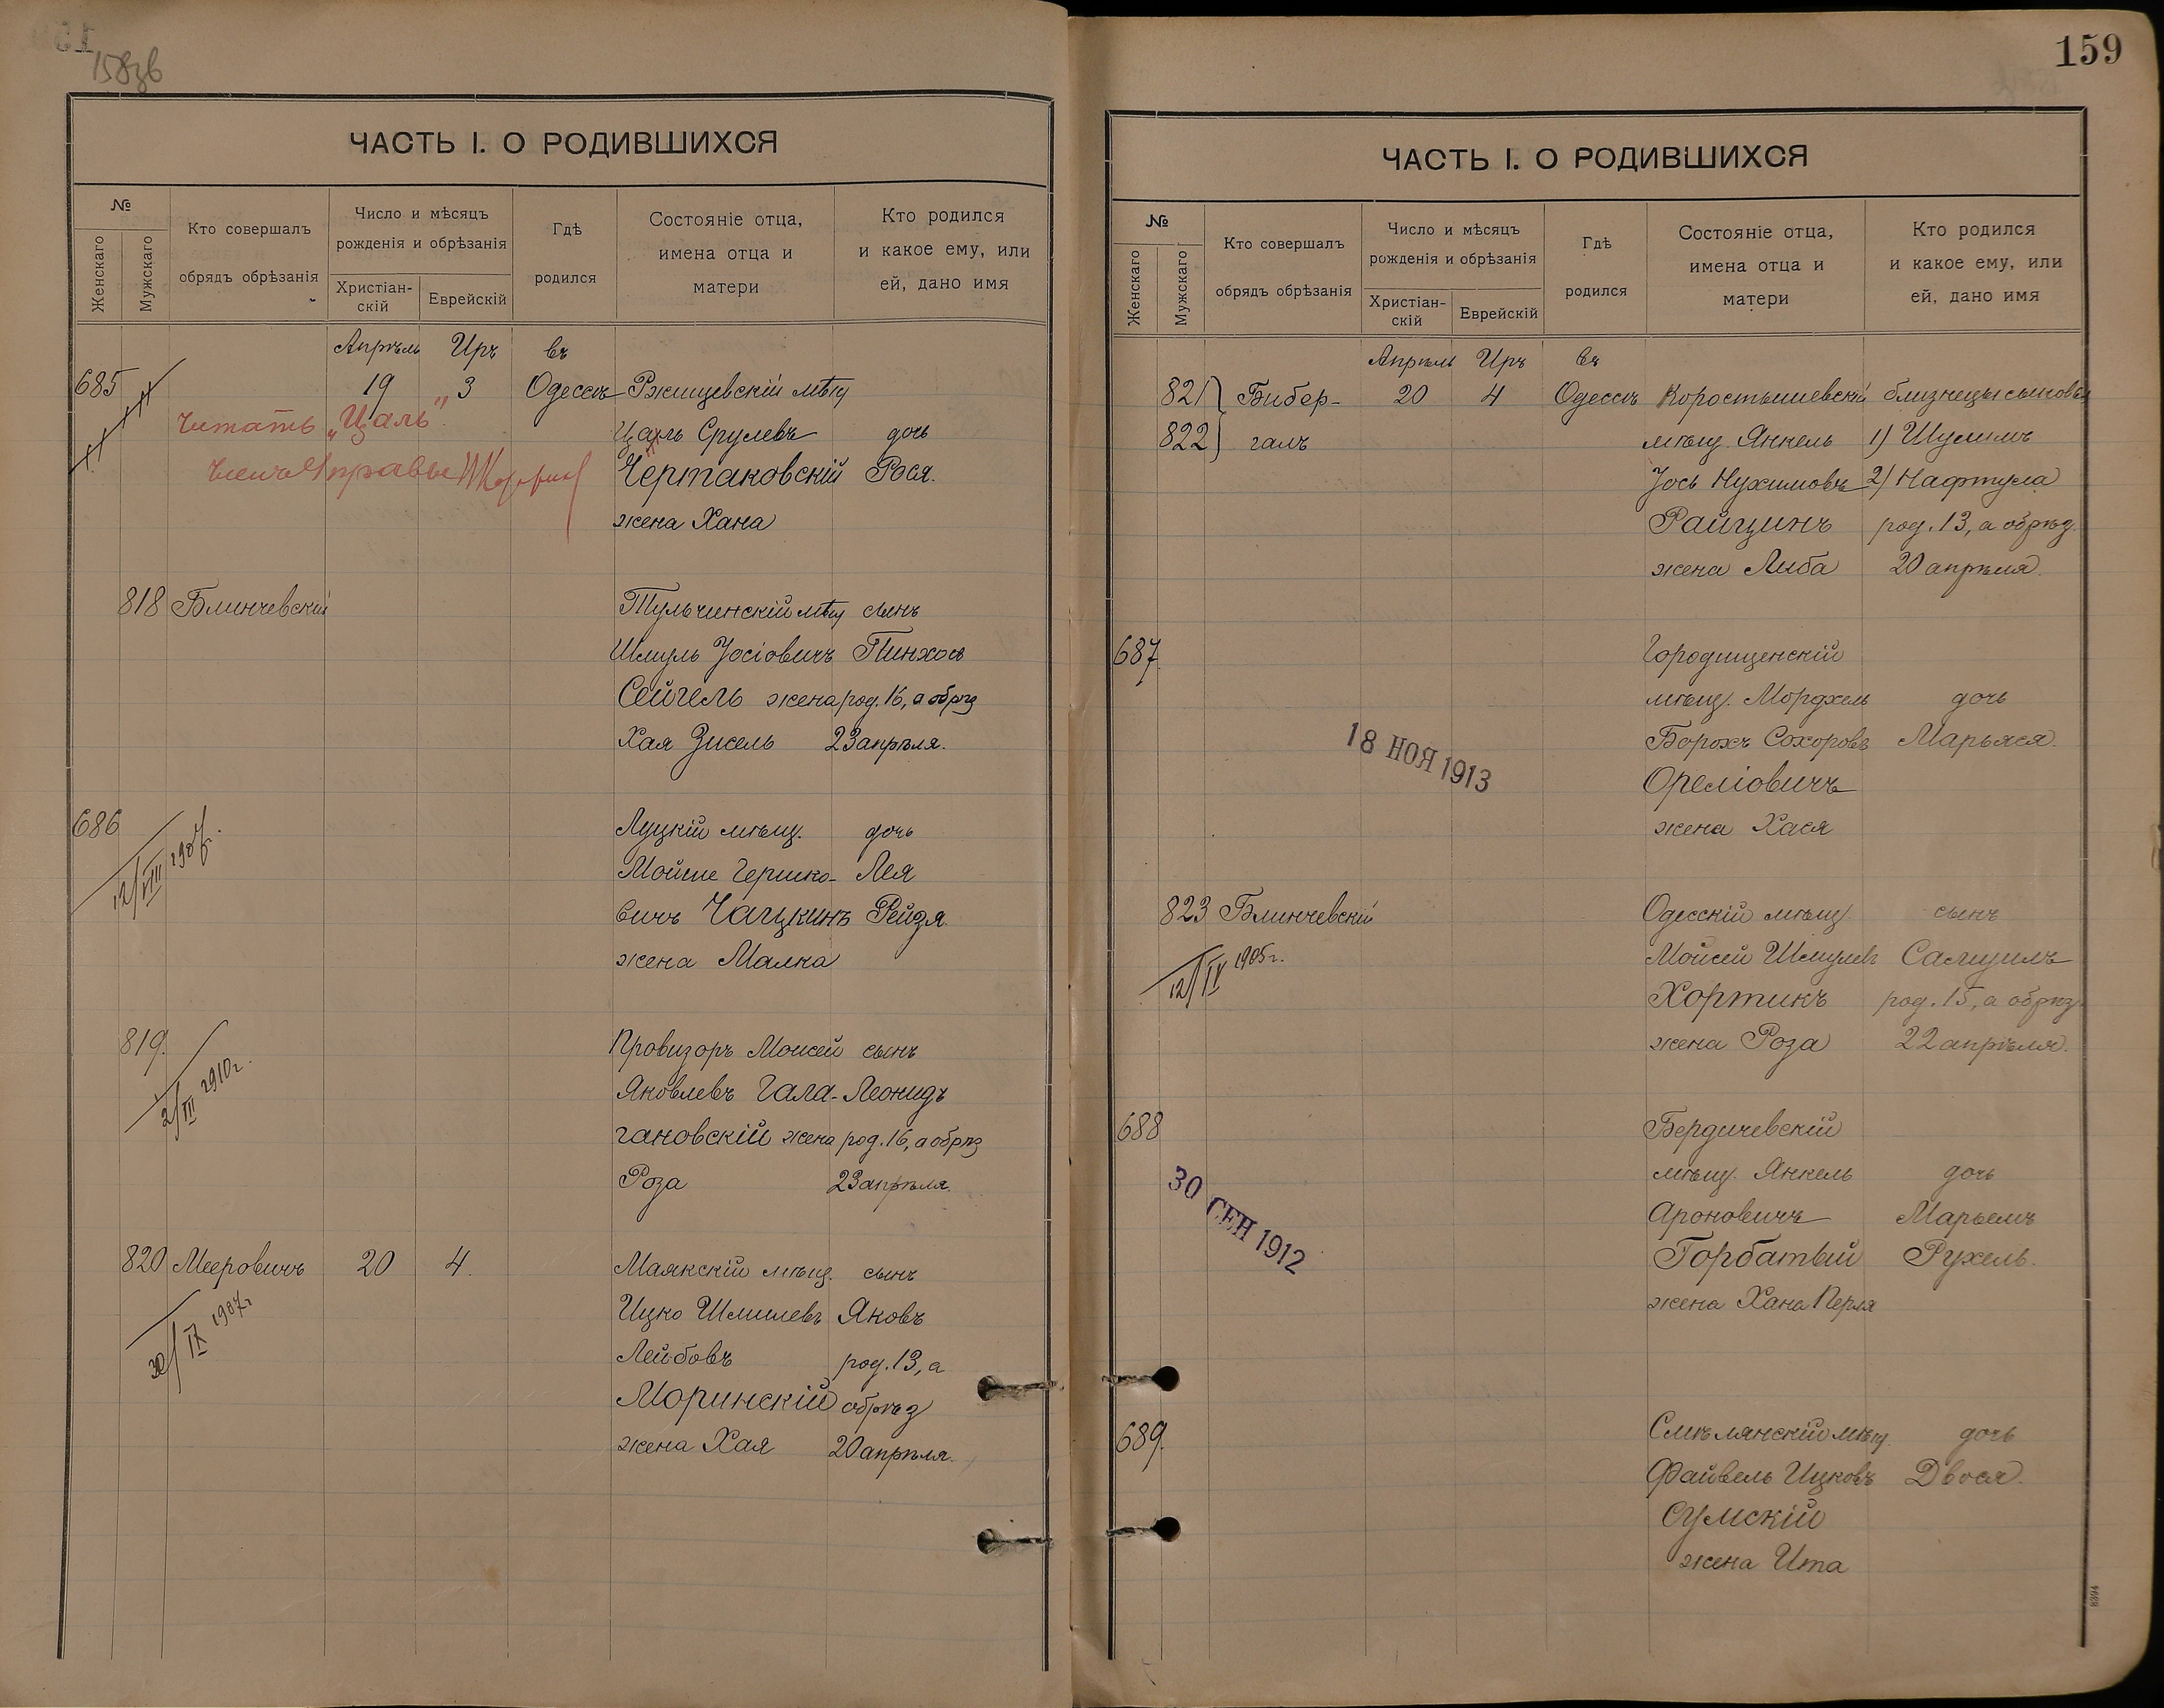 158 зв
ЧАСТЬ I. О РОДИВШИХСЯ
№
Женскаго
Мужскаго
Кто совершалъ
обрядъ обрѣзанія
Число и мѣсяцъ
рожденія и обрѣзанія
Христіан-
скій
Еврейскій
Гдѣ
родился
Состояніе отца,
имена отца и
матери
Кто родился
и какое ему, или
ей, дано имя
Апрѣль Иръ въ
685 19 3 Одессѣ Ржищевскій мѣщ
Читать „Цаль"
Цаль Срулевъ дочь
Членъ Управы
Чертаковскій Рося.
жена Хана
818 Блинчевскій Тульчинскій мѣщ сынъ
Шмуль Іосіовичъ Пинхосъ
Сейгель жена род. 16, а обрѣз
Хая Зисель 23 апрѣля.
686 Луцкій мѣщ. дочь
12/VIII 1907г.
Мойше Гершко- Лея
вичъ Чацкинъ Рейзя
жена Малка
819. Провизоръ Моисей сынъ
2/III 1910г.
Яковлевъ Гала- Леонидъ
гановскій жена род. 16, а обрѣз
Роза 23 апрѣля.
820 Мееровичъ 20 4. Маякскій мѣщ. сынъ
30/IX 1907г
Ицко Шмилевъ Яковъ
Лейбовъ род. 13, а
Моринскій обрѣз
жена Хая 20 апрѣля.
159
ЧАСТЬ I. О РОДИВШИХСЯ
№
Женскаго
Мужскаго
Кто совершалъ
обрядъ обрѣзанія
Число и мѣсяцъ
рожденія и обрѣзанія
Христіан-
скій
Еврейскій
Гдѣ
родился
Состояніе отца,
имена отца и
матери
Кто родился
и какое ему, или
ей, дано имя
Апрѣль Иръ въ
821) Бибер- 20 4 Одессѣ Коростышевскій близнецы сыновья
822) галъ мѣщ. Янкель 1) Шулимъ
Іось Нухимовъ 2) Нафтула
Райцинъ род. 13, а обрѣз.
жена Либа 20 апрѣля.
687. Городищенскій
мѣщ. Мордхель дочь
Борохъ Сохоровъ Марьяся.
18 НОЯ 1913
Ореліовичъ
жена Хася
823 Блинчевскій Одесскій мѣщ. сынъ
12/IV 1905г.
Мойсей Шмулев Самуилъ
Хортикъ род. 15, а обрѣз.
жена Роза 22 апрѣля.
688 Бердичевскій
мѣщ. Янкель дочь
30 СЕН 1912
Ароновичъ Марьемъ
Горбатый Рухель.
жена Хана Перля
689. Смѣлянскій мѣщ. дочь
Файвель Ицковъ Двося.
Сумскій
жена Ита
8394